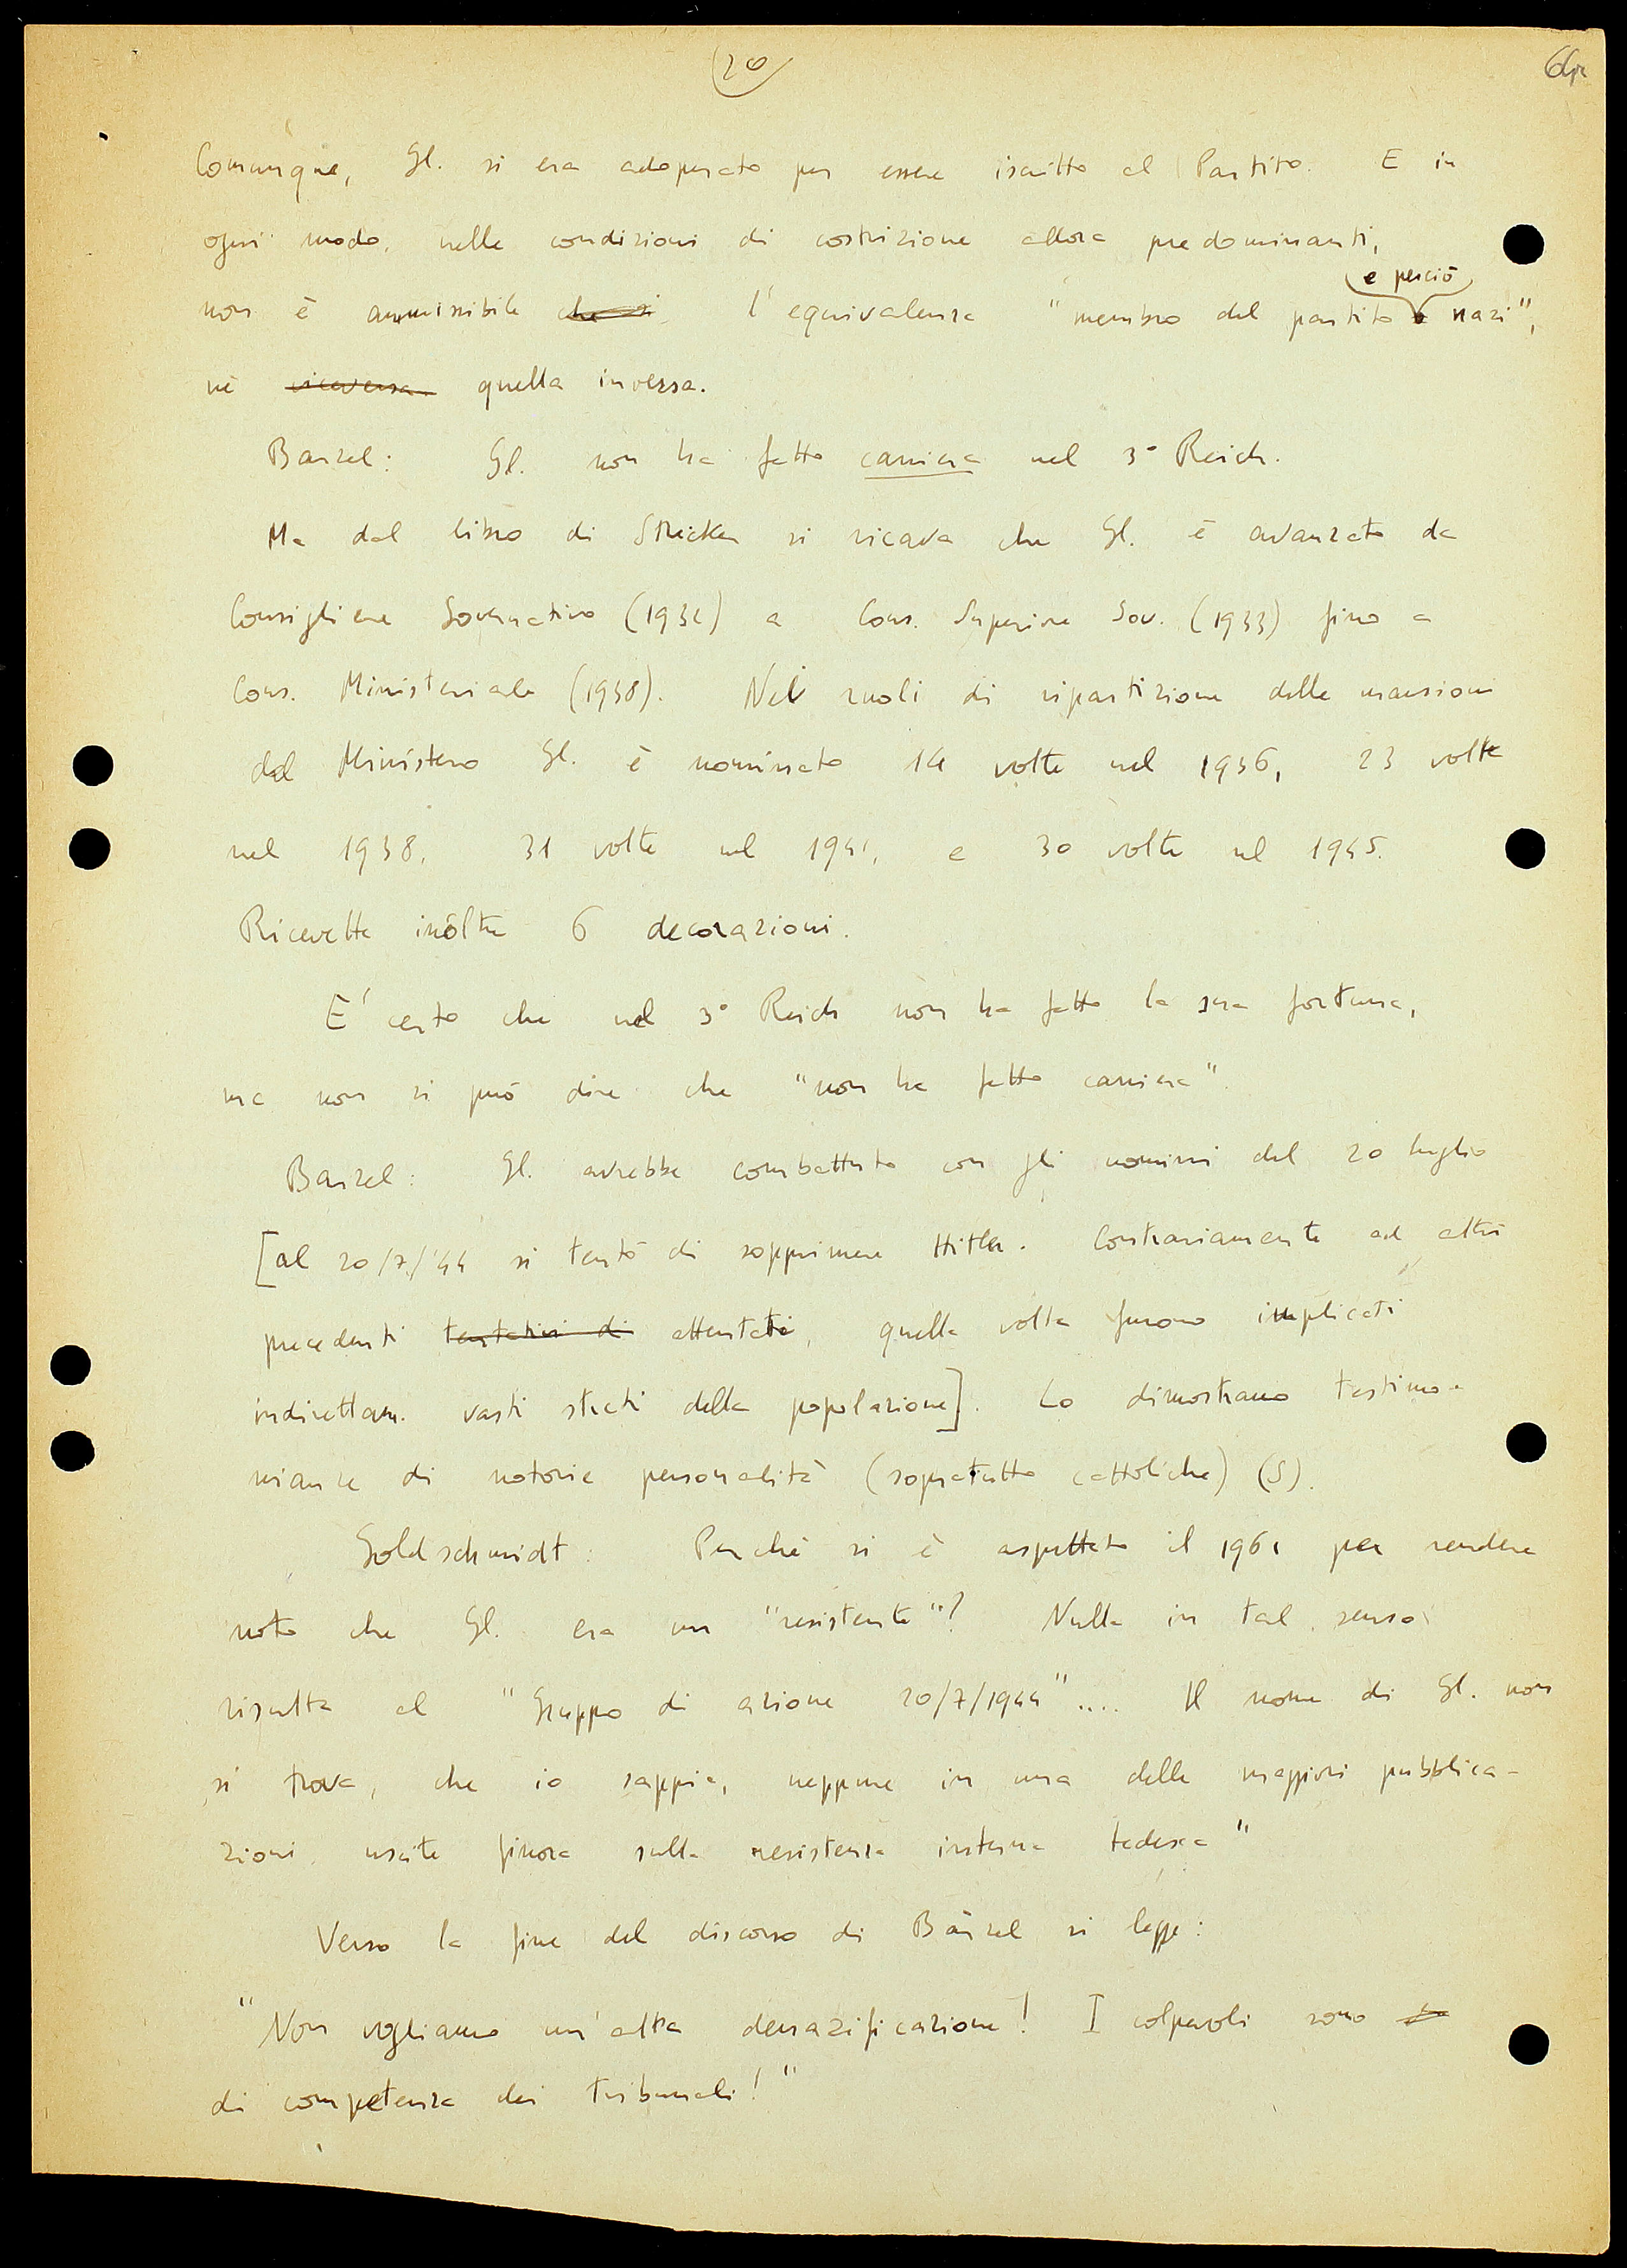 20
Comunque, Gl. si era adoperato per essere iscritto al Partito. E in
ogni modo, nelle condizioni di costrizione allora predominanti,
e perciò
non è ammissibile che si l'equivalenza "membro del partito è nazi",
nè viceversa quella inversa.
Barzel: Gl. non ha fatto carriera nel 3° Reich.
Ma dal libro di Strecker si ricava che Gl. è avanzato da
Consigliere Governativo (1932) a Cons. Superiore Gov. (1933) fino a
Cons. Ministeriale (1938). Nei ruoli di ripartizione delle mansioni
del Ministero Gl. è nominato 14 volte nel 1936, 23 volte
nel 1938, 31 volte nel 1941, e 30 volte nel 1945.
Ricevette inoltre 6 decorazioni.
E' certo che nel 3° Reich non ha fatto la sua fortuna,
ma non si può dire che "non ha fatto carriera".
Barzel: Gl. avrebbe combattuto con gli uomini del 20 luglio
[al 20/7/'44 si tentò di sopprimere Hitler. Contrariamente ad altri
precedenti tentativi di attentati, quella volta furono implicati
indirettam. vasti strati della popolazione]. Lo dimostrano testimo-
nianze di notorie personalità (sopratutto cattoliche) (5).
Goldschmidt: Perché si è aspettato il 1961 per rendere
noto che Gl. era un "resistente"? Nulla in tal senso
risulta al "Gruppo di azione 20/7/1944".... Il nome di Gl. non
si trova, che io sappia, neppure in una delle maggiori pubblica-
zioni uscite finora sulla resistenza interna tedesca"
Verso la fine del discorso di Bärzel si legge:
"Non vogliamo un'altra denazificazione! I colpevoli sono
di competenza dei tribunali!"